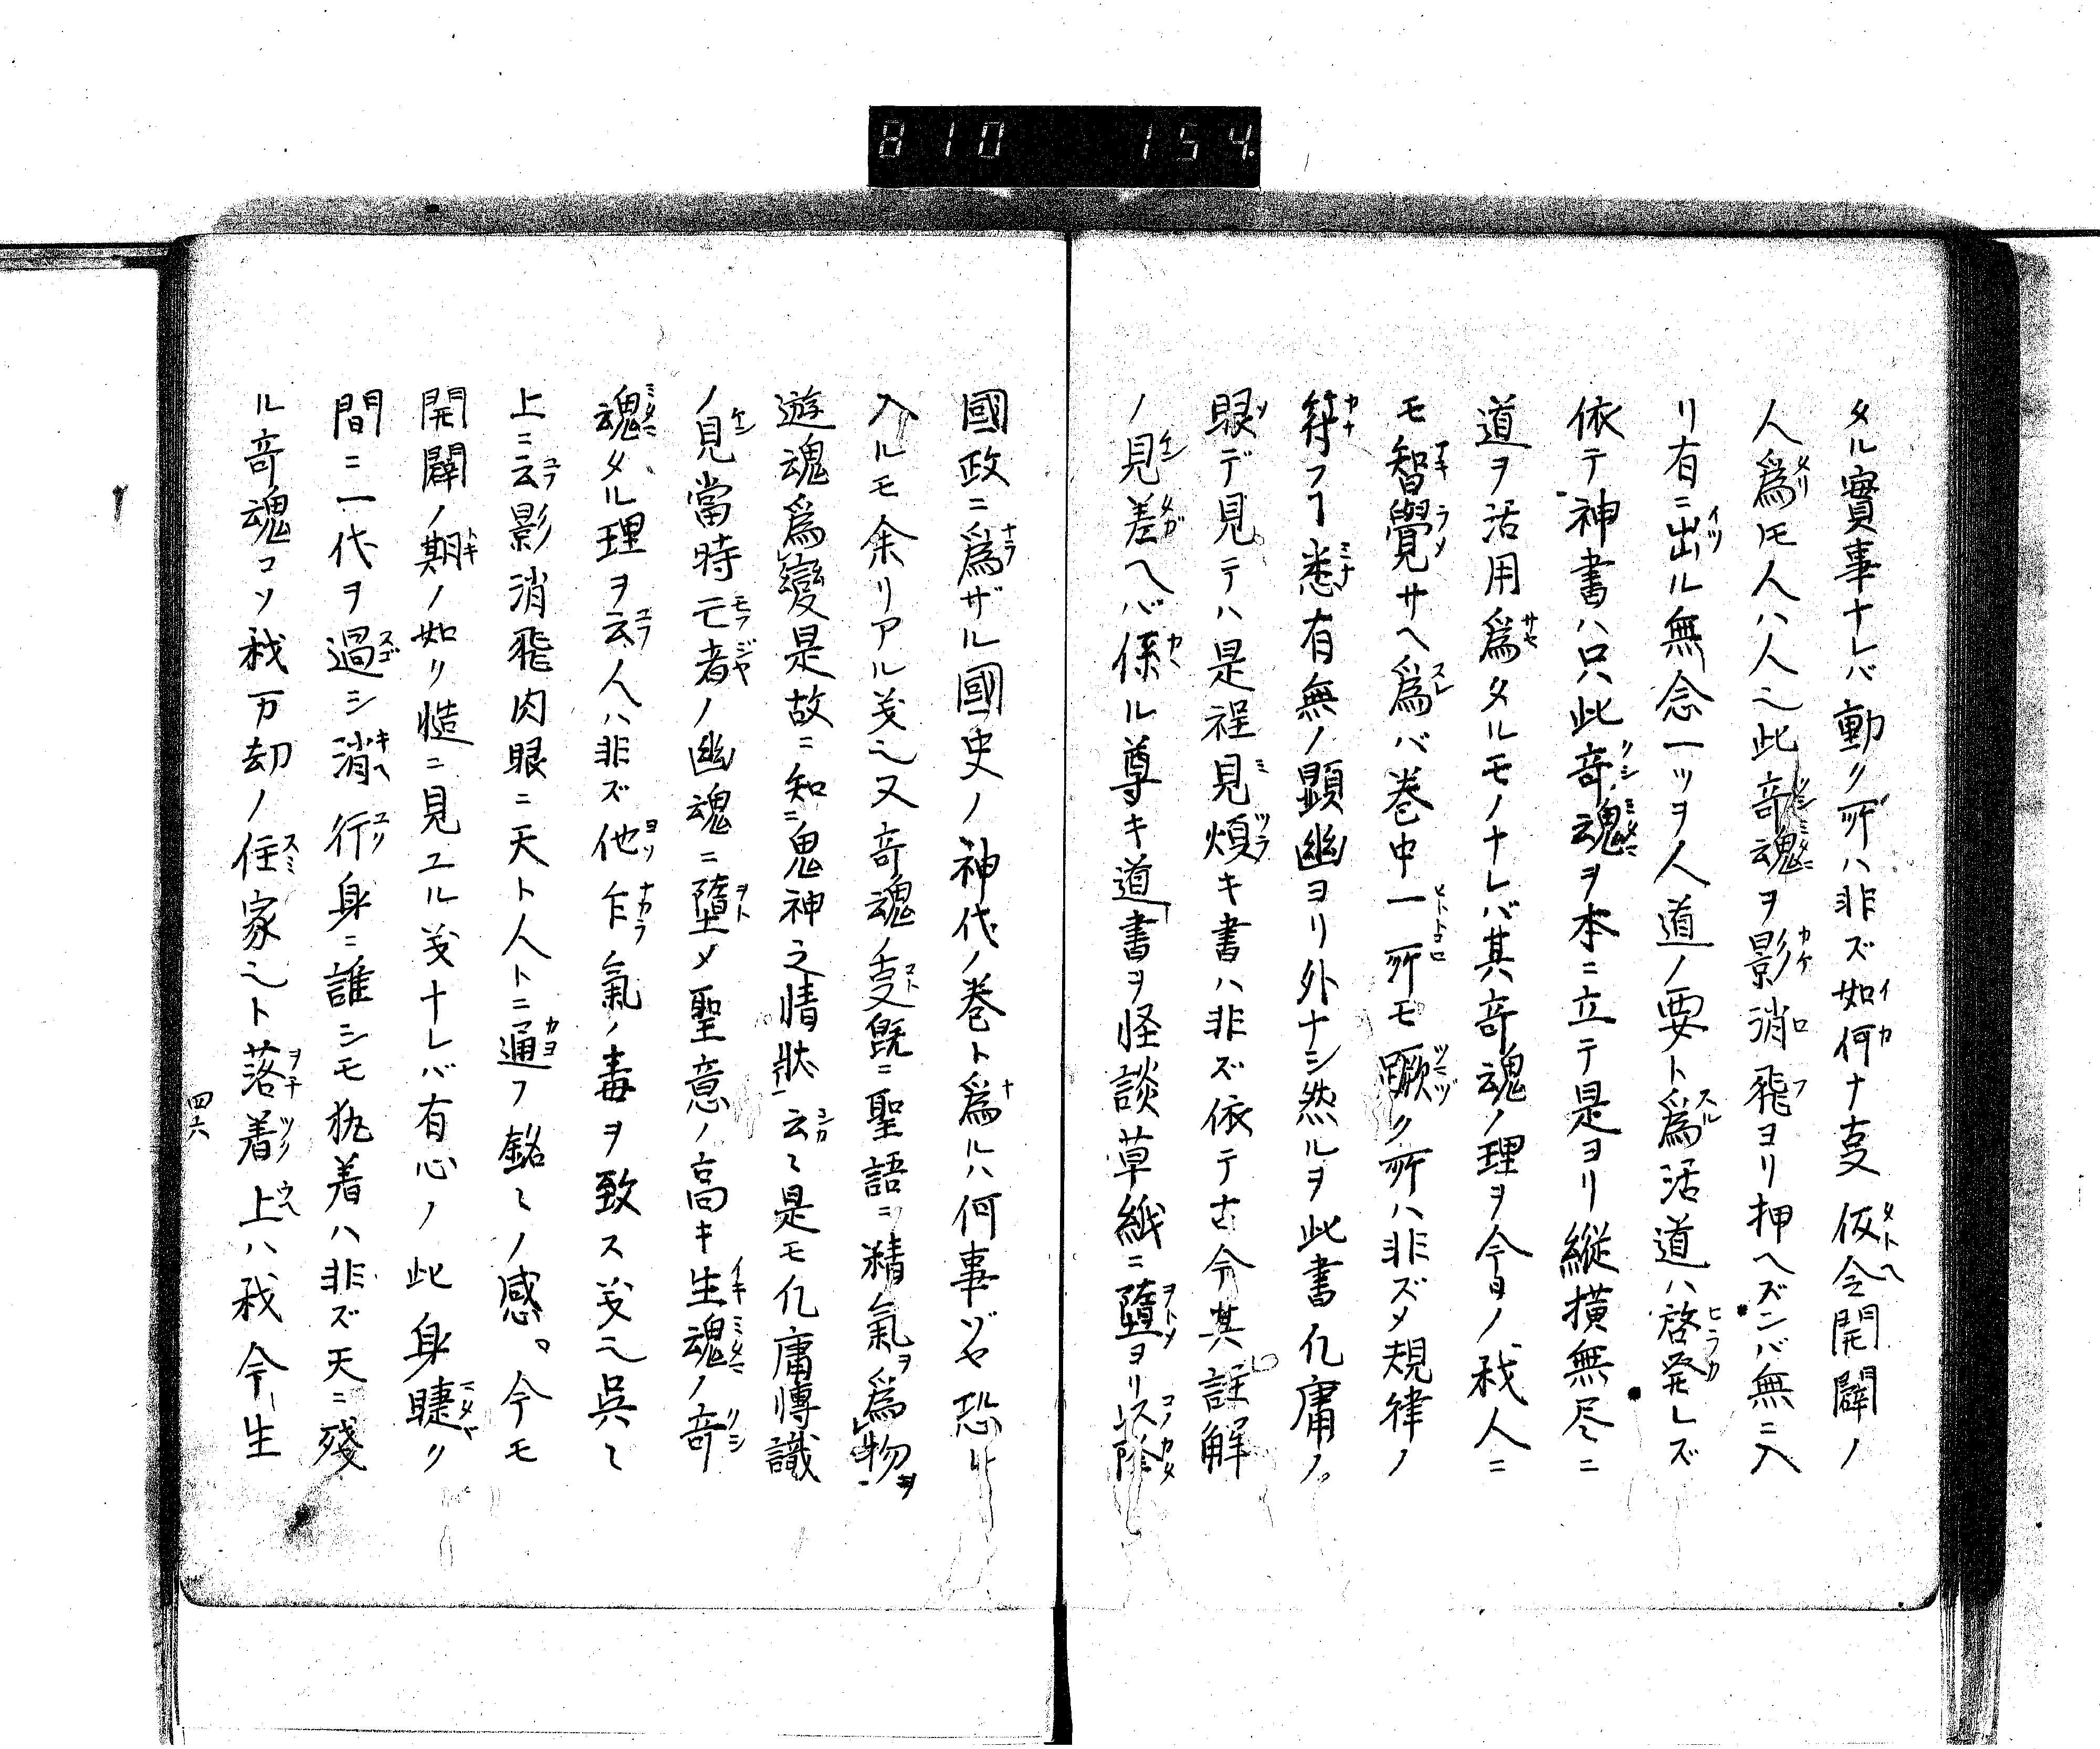 810 154.
タル實事ナレバ動ク所ハ非ズ如何ナ叓仮令開闢ノ
人爲ㇳモ人ハ人也此奇魂ヲ影消飛ヨリ押ヘズンバ無ニ入
リ有ニ出ル無念一ツヲ人道ノ要ト爲活道ハ啓発レズ
依テ神書ハ只此奇魂ヲ本ニ立テ是ヨリ縱横無尽ニ
道ヲ活用爲タルモノナレバ其奇魂ノ理ヲ今日ノ我人ニ
モ智覺サヘ爲バ巻中一所モ蹶ク所ハ非ズ〆規律ノ
符フヿ悉有無ノ顕幽ヨリ外ナシ然ルヲ此書凢庸ノ
眼デ見テハ是程見煩キ書ハ非ズ依テ古今其註解
ノ見差ヘバ係ル尊キ道書ヲ怪談草紙ニ墮ヨリ
國政ニ爲ザル國史ノ神代ノ巻ト爲ルハ何事ゾヤ恐レ
入ルモ余リアル义也又奇魂ノ叓既ニ聖語ニ精氣ヲ爲物ヲ
遊魂爲變是故ニ知ニ鬼神之情狀ㇳ云〻是モ凢庸博識
ノ見當時亡者ノ幽魂ニ墮〆聖意ノ高キ生魂ノ奇
魂タル理ヲ云人ハ非ズ他乍氣ノ毒ヲ致ス义也呉〻
上ニ云影消飛肉眼ニ天ト人トニ通フ銘〻ノ感。今モ
開闢ノ期ノ如リ慥ニ見ユル义ナレバ有心ノ此身瞹ク
間ニ一代ヲ過シ消行身ニ誰シモ執着ハ非ズ天ニ殘
ル奇魂コソ我万却ノ住家也ト落着上ハ我今生
四六